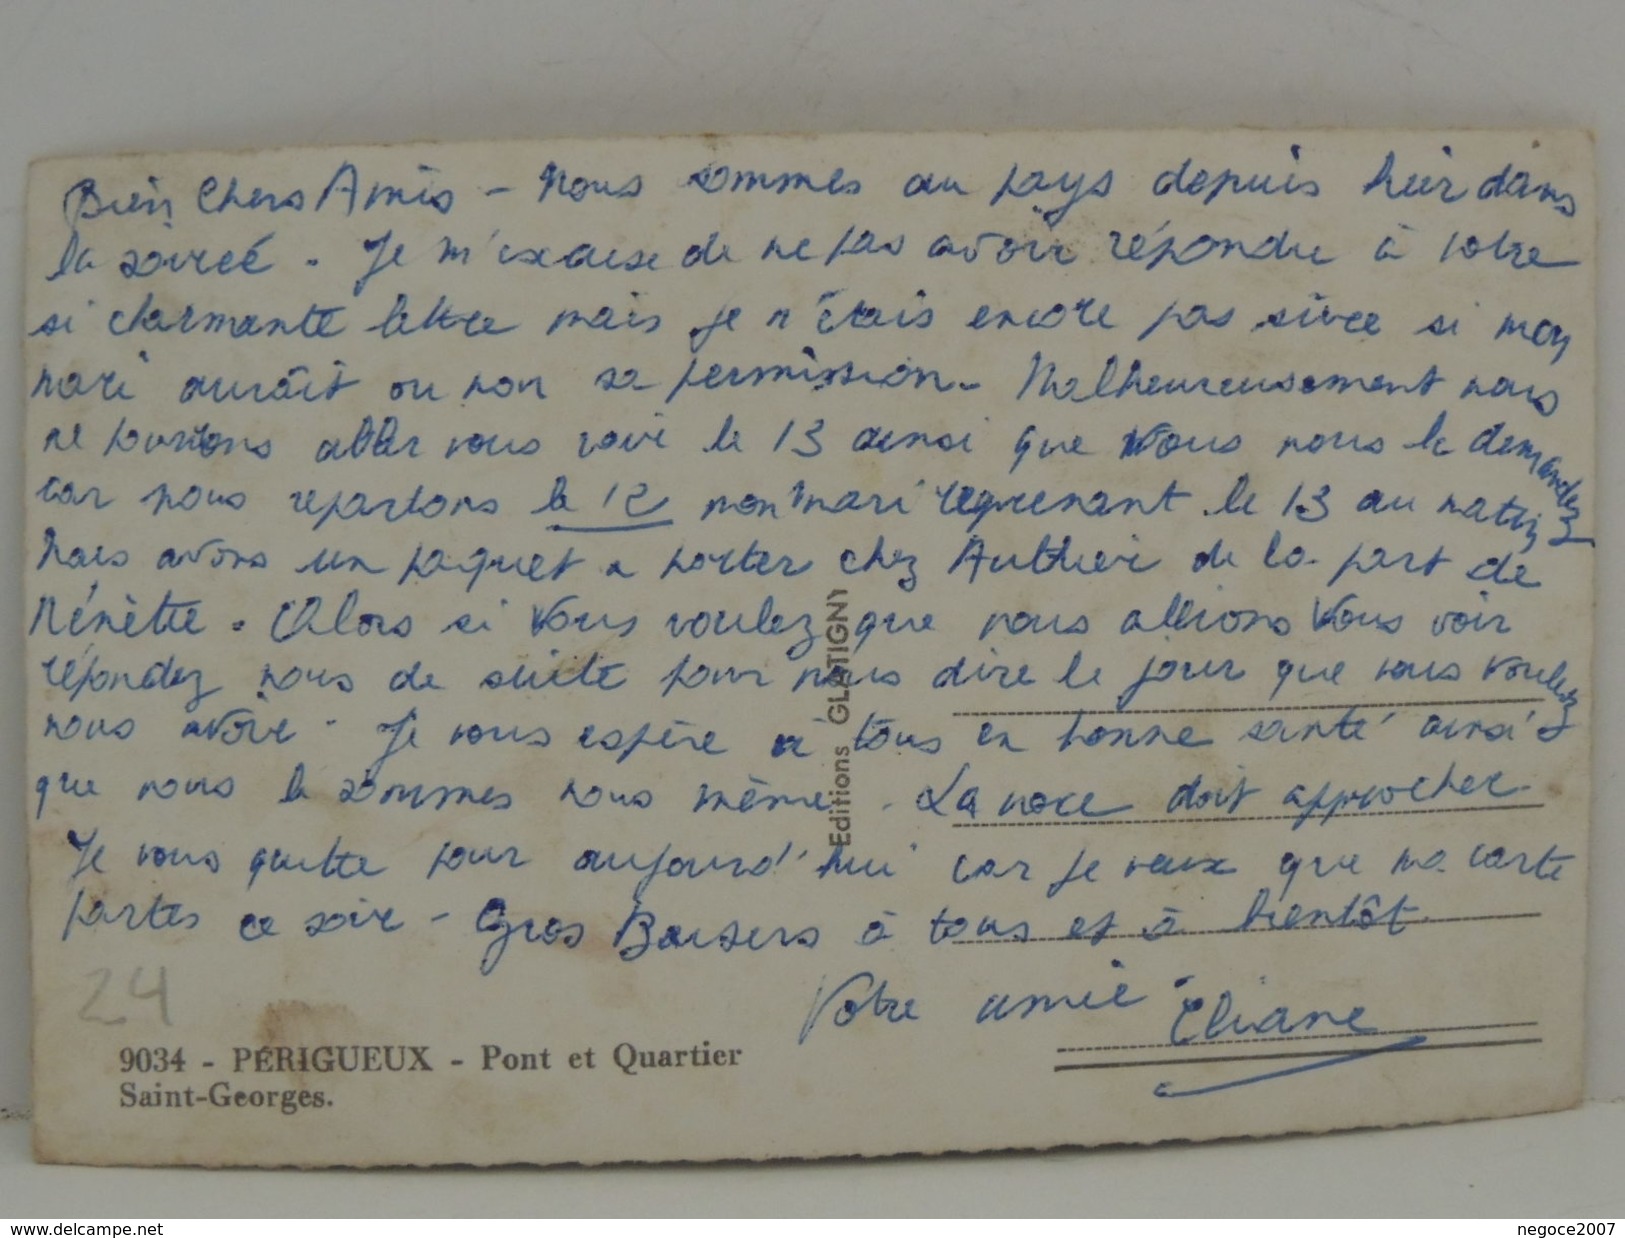 Bien Chers Amis - Nous sommes au pays depuis hier dans
la soireé. Je m'excuse de ne pas avoir répondu à votre
si charmante lettre mais je n'étais encore pas sûre si mon
mari aurait ou non sa permission - Malheureusement nous
ne pourrons aller vous voir le 13 ainsi que Vous nous le demandez
car nous repartons le 12 mon mari reprenant le 13 au matin
Nous avons un paquet a porter chez Authier de la part de
Nénette. Alors si Vous voulez que nous allions Vous voir
répondez nous de suite pour nous dire le jour que vous voulez
nous avoir. Je vous espère à tous en bonne santé ainsi
que nous le sommes nous même. La noce doit approcher.
Je vous quitte pour aujourd'hui car je veux que ma carte
partes ce soir - Gros Baisers à tous et à bientôt.
Votre amie Eliane
24
9034 - PÉRIGUEUX - Pont et Quartier
Saint-Georges.
Editions GLATIGNY
www.delcampe.net
negoce2007